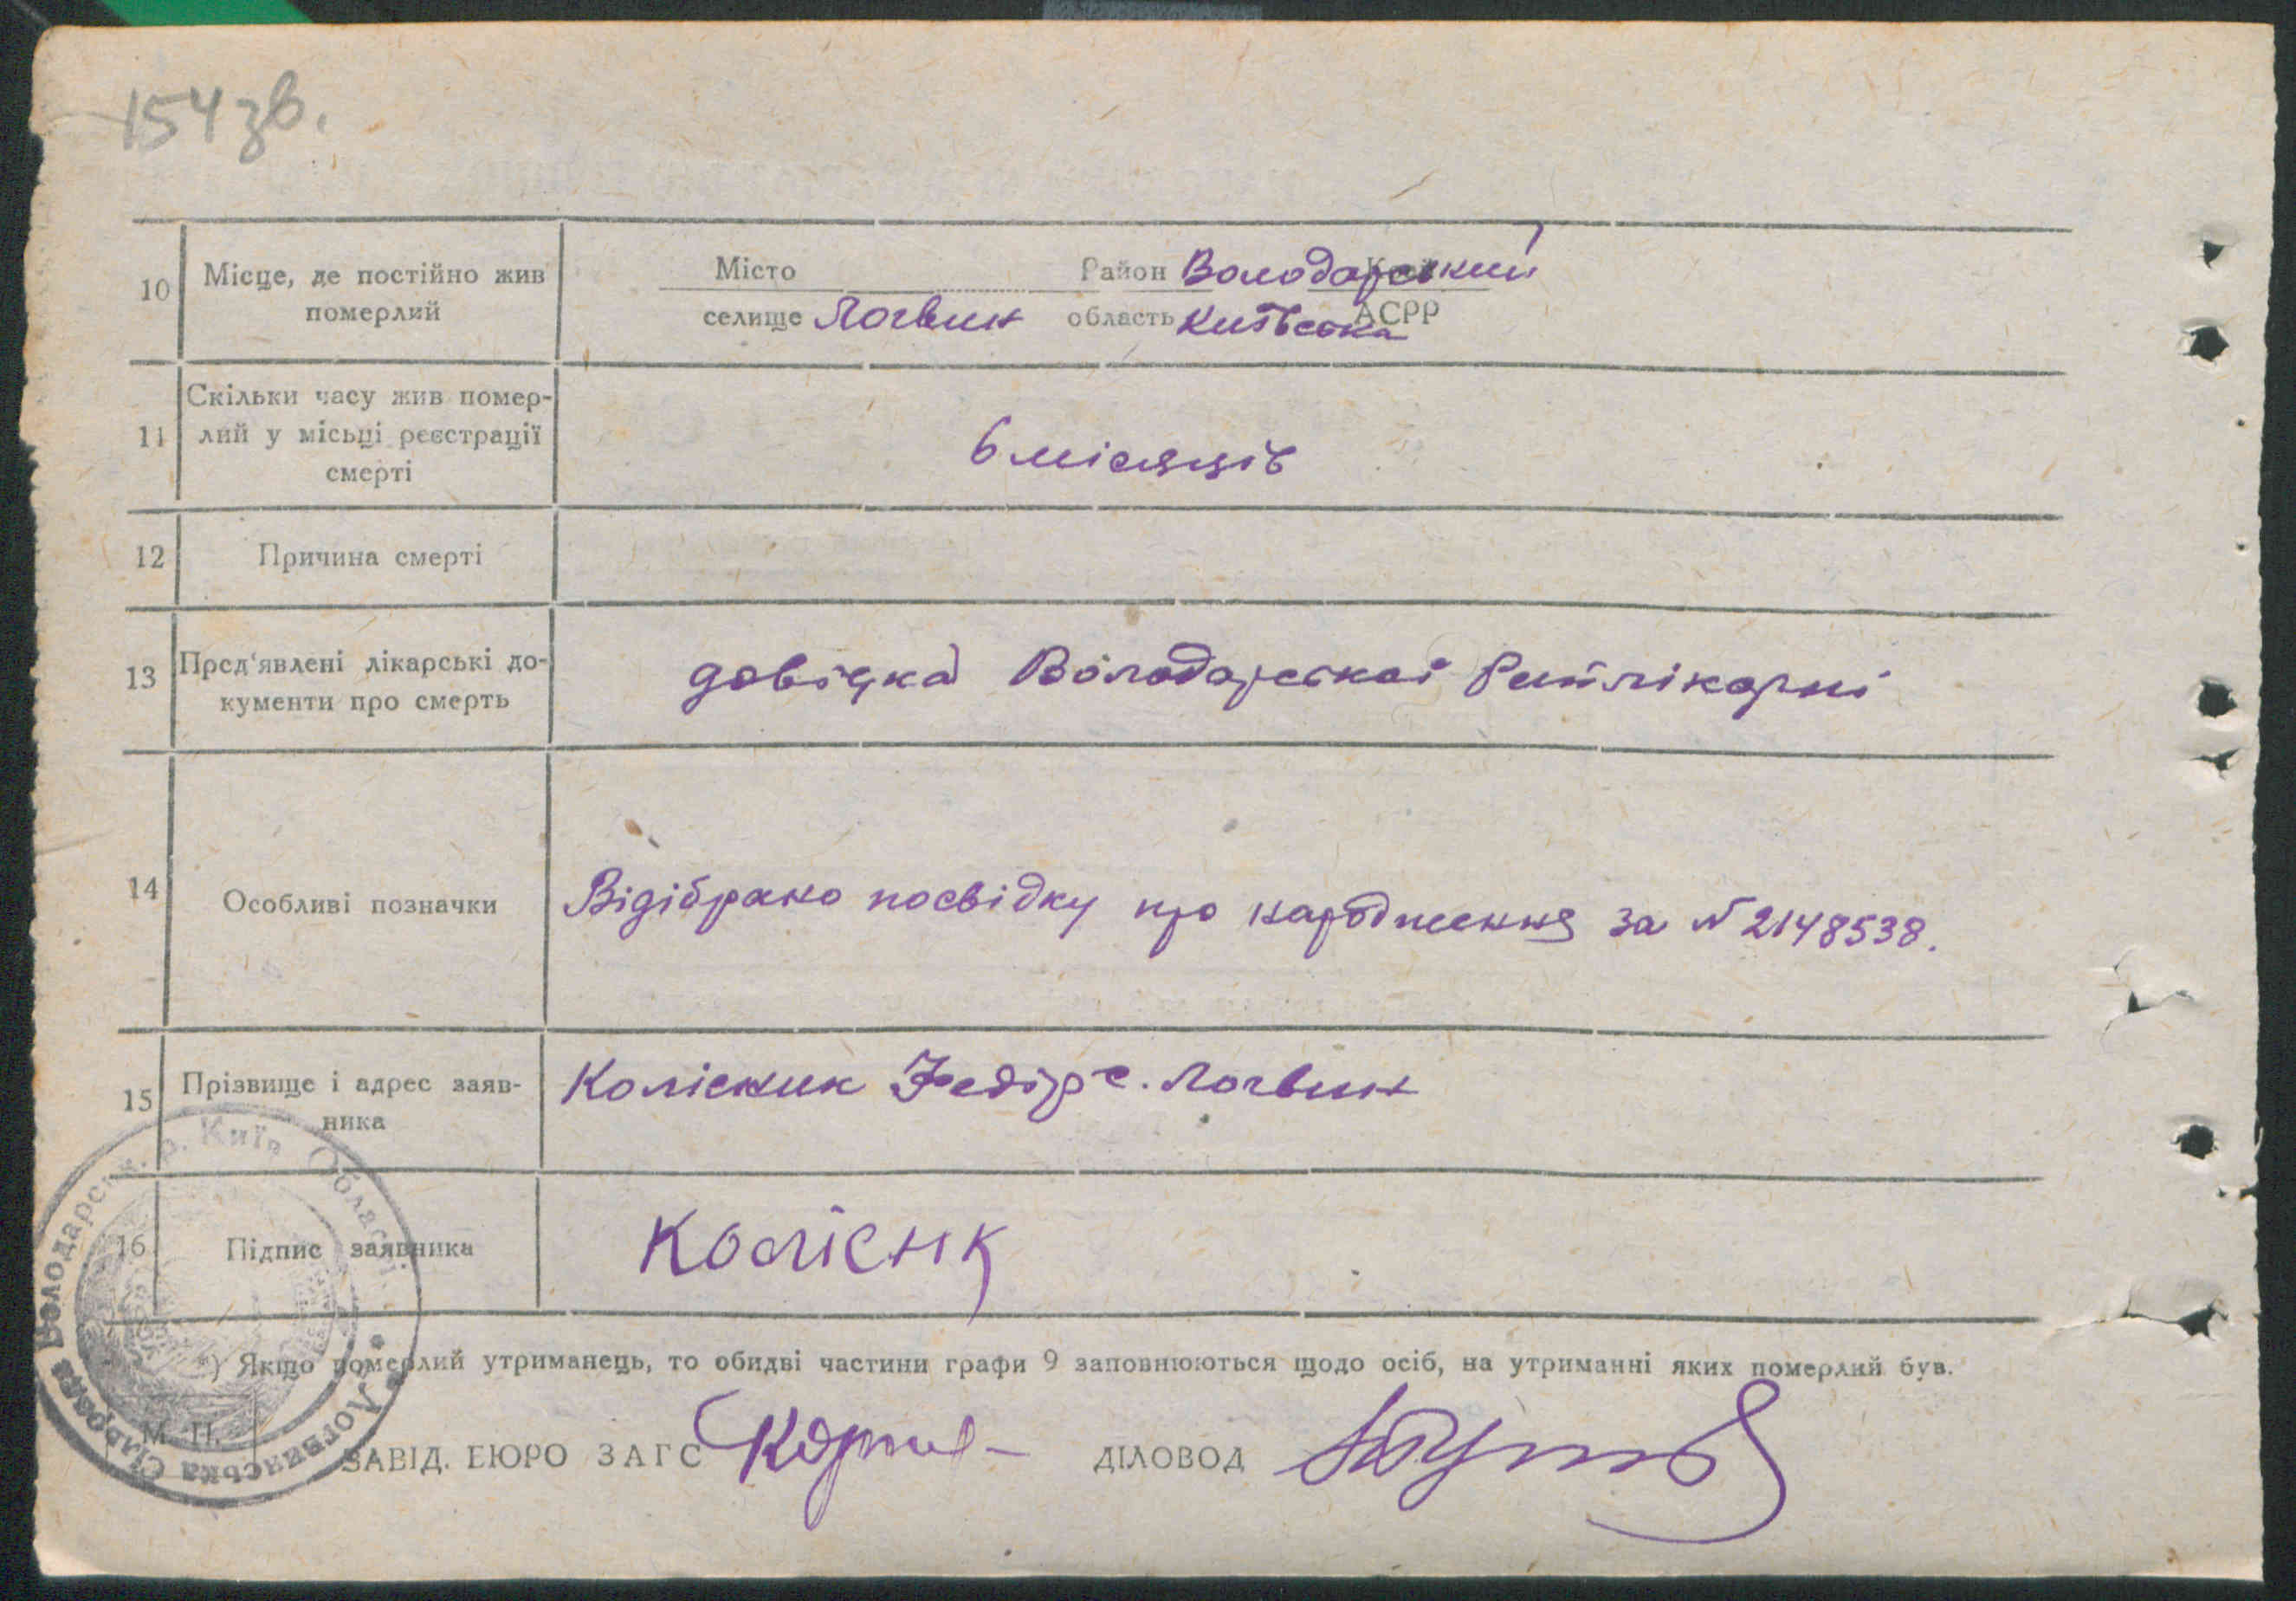 154 зв.
10 Місце, де постійно жив померлий
Місто Район Володарський Край
селище Логвин область Київська АСРР
11 Скільки часу жив помер-
лий у місьці реєстрації
смерті
6 місяців
12 Причина смерті
13 Пред'явлені лікарські до-
кументи про смерть
довідка Володарської Райлікарні
14 Особливі позначки
Відібрано посвідку про народження за № 2148538.
15 Прізвище і адрес заяв-
ника
Колісник Федір с. Логвин
16 Підпис заявника
Коліснк
*) Якщо померлий утриманець, то обидві частини графи 9 заповнюються щодо осіб, на утриманні яких померлий був.
М. П.
ЗАВІД. БЮРО ЗАГС ДІЛОВОД
Логвинська Сільрада Володарськ. р. Київ. Області